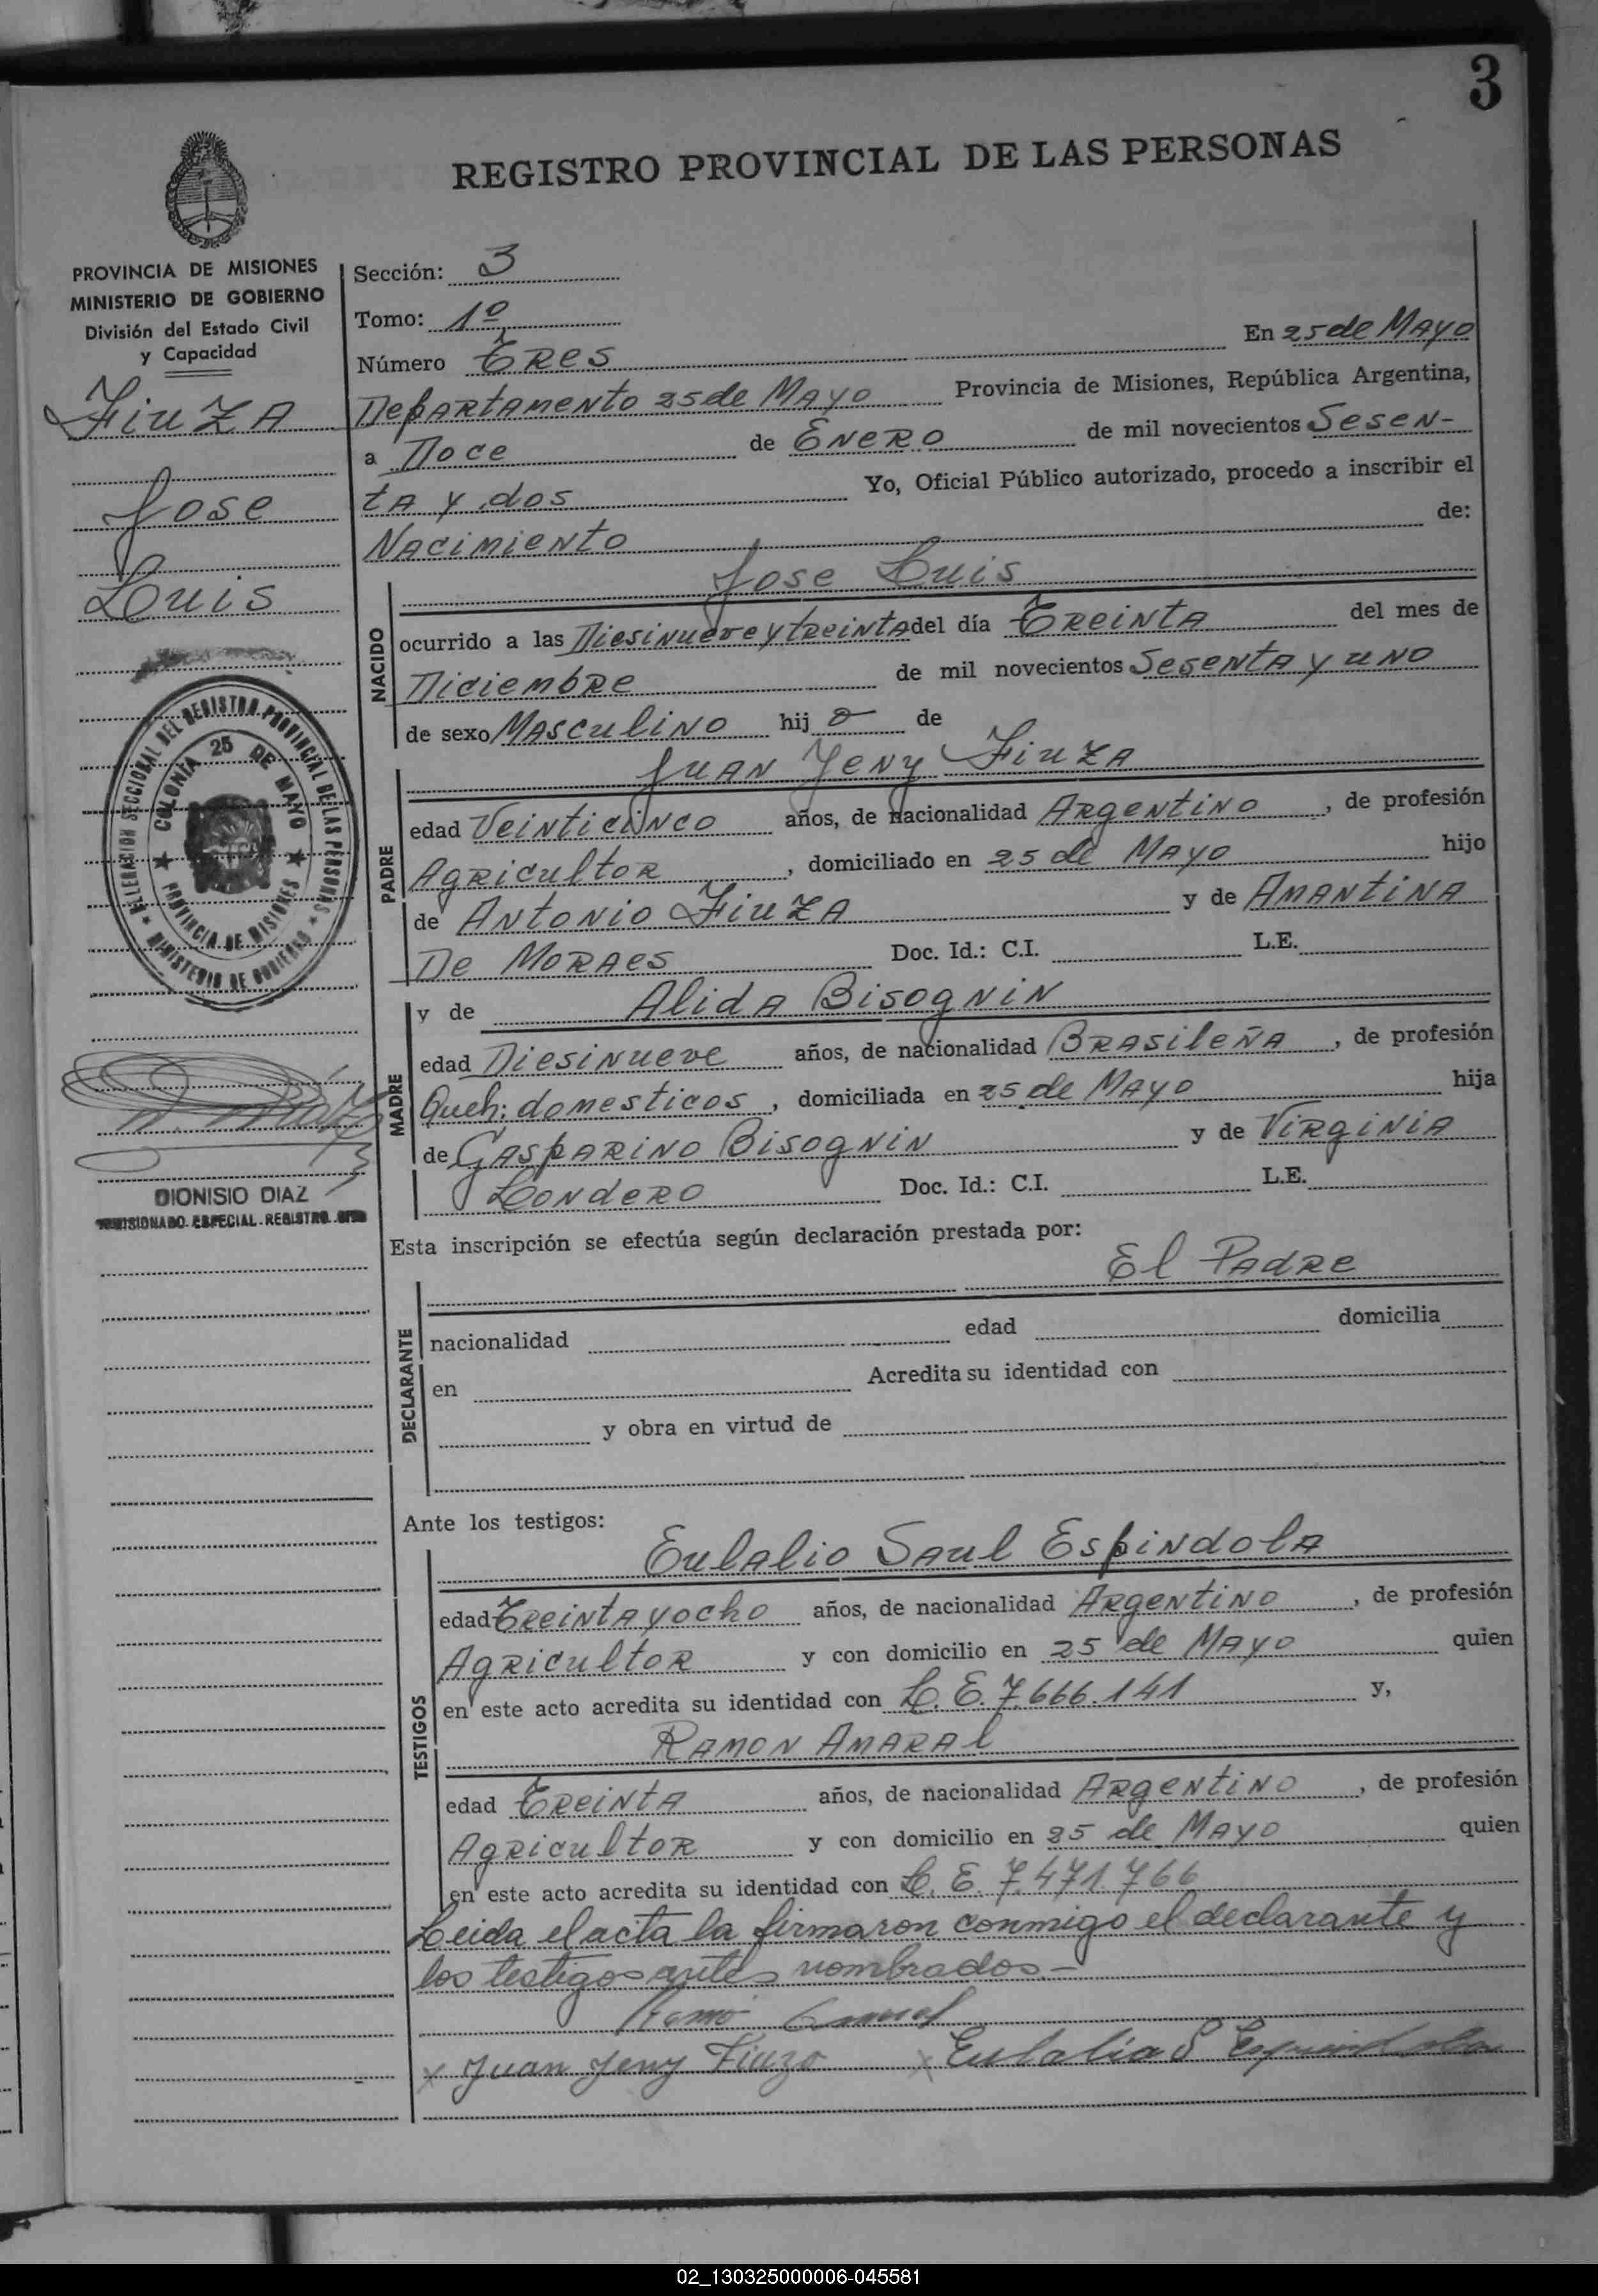 3
REGISTRO PROVINCIAL DE LAS PERSONAS
PROVINCIA DE MISIONES
MINISTERIO DE GOBIERNO
División del Estado Civil
y Capacidad
Fiuza
Jose
Luis
DELEGACION SECCIONAL DEL REGISTRO PROVINCIAL DE LAS PERSONAS
COLONIA 25 DE MAYO
PROVINCIA DE MISIONES
MINISTERIO DE GOBIERNO
DIONISIO DIAZ
COMISIONADO ESPECIAL REGISTRO
Sección: 3
Tomo: 1º
Número Tres En 25 de Mayo
Departamento 25 de Mayo Provincia de Misiones, República Argentina,
a Doce de Enero de mil novecientos Sesen-
ta y dos Yo, Oficial Público autorizado, procedo a inscribir el
Nacimiento de:
Jose Luis
NACIDO
ocurrido a las Diesinueve y treinta del día Treinta del mes de
Diciembre de mil novecientos Sesenta y uno
de sexo Masculino hij o de
Juan Jeny Fiuza
PADRE
edad Veinticinco años, de nacionalidad Argentino, de profesión
Agricultor, domiciliado en 25 de Mayo hijo
de Antonio Fiuza y de Amantina
De Moraes Doc. Id.: C.I. L.E.
y de Alida Bisognin
MADRE
edad Diesinueve años, de nacionalidad Brasileña, de profesión
Queh: domesticos, domiciliada en 25 de Mayo hija
de Gasparino Bisognin y de Virginia
Londero Doc. Id.: C.I. L.E.
Esta inscripción se efectúa según declaración prestada por:
El Padre
DECLARANTE
nacionalidad edad domicilia
en Acredita su identidad con
y obra en virtud de
Ante los testigos:
Eulalio Saul Espindola
TESTIGOS
edad Treinta y ocho años, de nacionalidad Argentino, de profesión
Agricultor y con domicilio en 25 de Mayo quien
en este acto acredita su identidad con L.E. 7.666.141 y,
Ramon Amaral
edad Treinta años, de nacionalidad Argentino, de profesión
Agricultor y con domicilio en 25 de Mayo quien
en este acto acredita su identidad con L.E. 7.471.766
Leida el acta la firmaron conmigo el declarante y
los testigos antes nombrados.-
x Juan Jeny Fiuza x Eulalio S Espindola
02_130325000006-045581